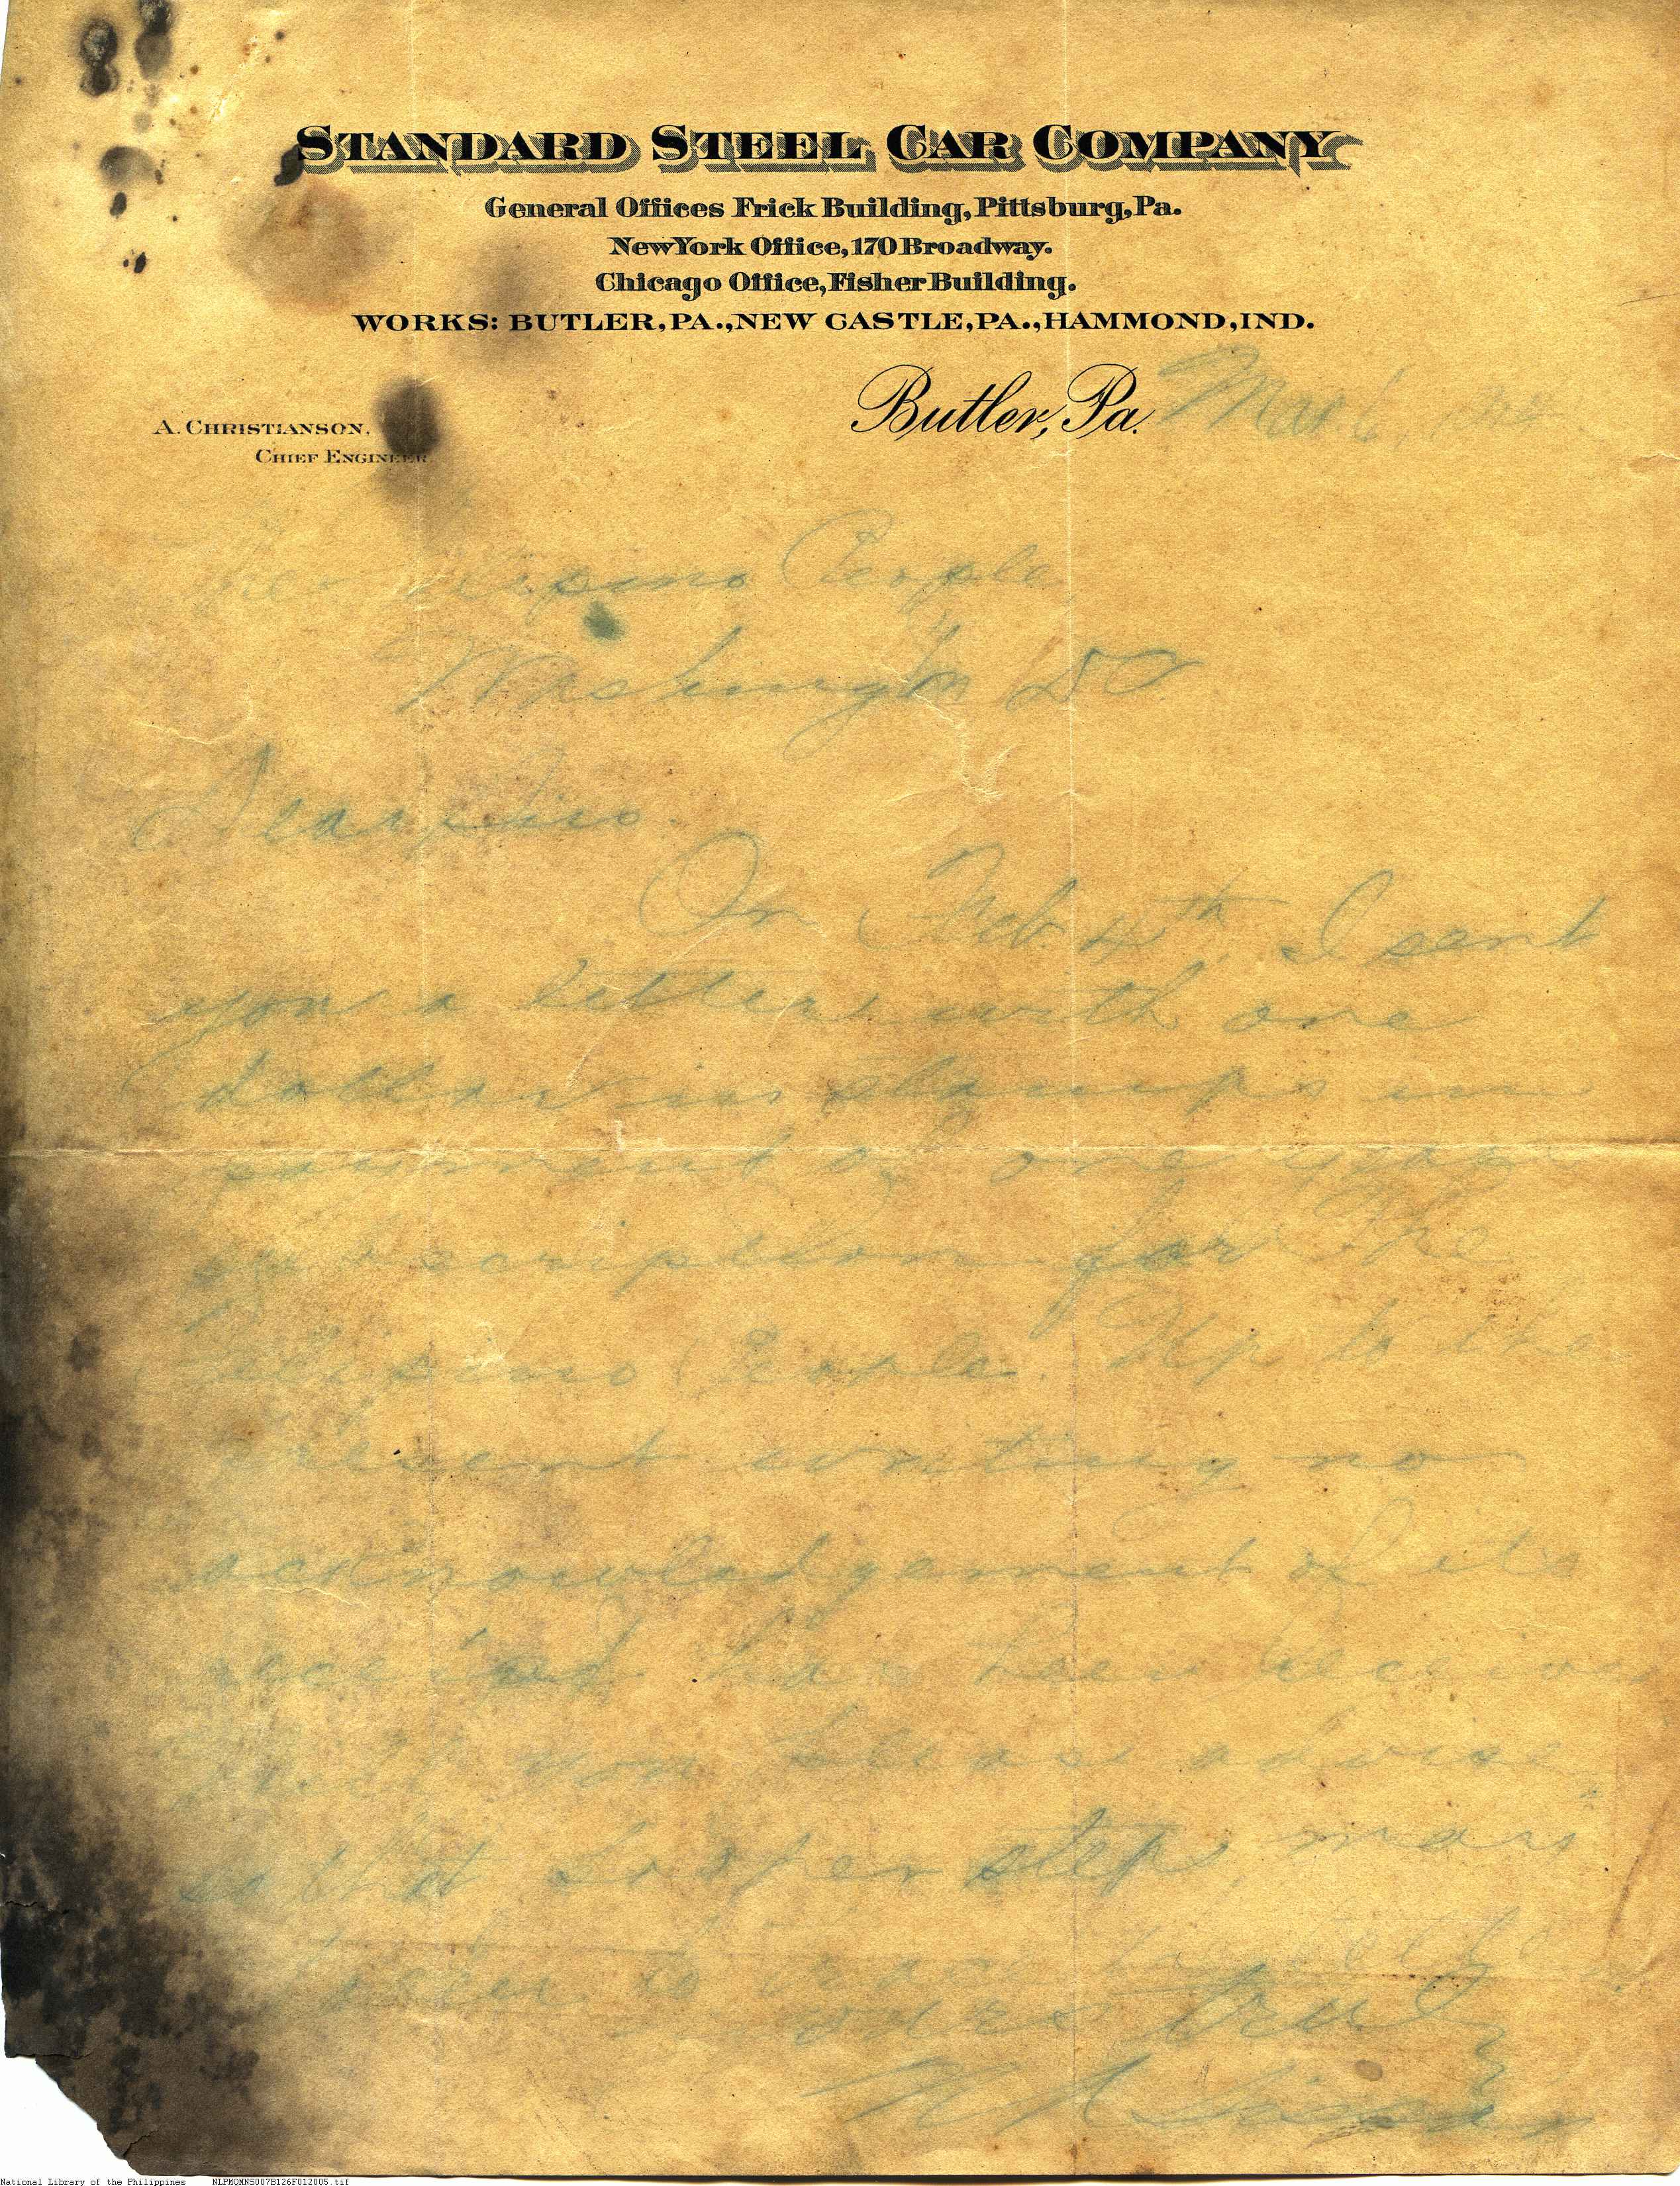 STANDARD STEEL CAR COMPANY
General Offices Frick Building, Pittsburg, Pa.
New York Office, 170 Broadway.
Chicago Office, Fisher Building.
WORKS: BUTLER, PA., NEW CASTLE, PA., HAMMOND, IND.
Butler, Pa. Mar 6,
A. CHRISTIANSON,
CHIEF ENGINEER.
People
Washington DC
Dear Sirs.
On Feb. 4th I sent
you a letter with one
dollar in stamps in
payment of one year
subscription for The
Filipino People. Up to the
present writing no
acknowledgement of its
receipt has been
Will you please advise
so that proper steps may
be
Yours truly
National Library of the Philippines NLPMQMNS007B126F012005.tif